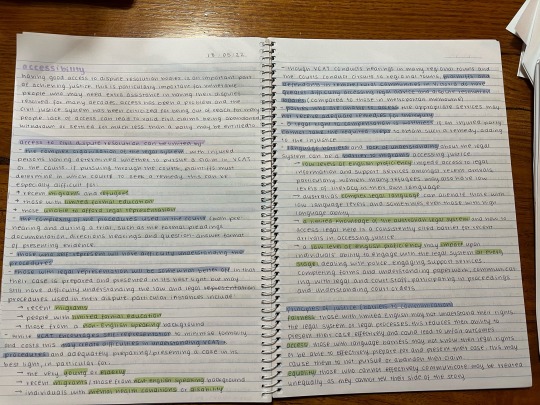 18.05.22
accessibility
having good access to dispute resolution bodies is an important part
of achieving justice. this is particularly important for vulnerable
people who may need extra assistance in having their disputes
resolved. for many decades, access has been a problem and the
civil justice system has been criticised for being out of reach for many
people. lack of access can lead to valid civil claims being abandoned
withdrawn or settled for much less than a party may be entitled.
access to civil dispute resolution can be limited by:
with injured
persons having determined whether to pursue a claim in VCAT
or the courts. if pursuing through the courts, plaintiffs must
determine in which court to seek a remedy. this can be
especially difficult for:
→ recent migrants and refugees
→ those with limited formal education
→ those unable to afford legal representation
procedures used in the courts from pre
hearing and during a trial, such as the formal pleadings
documentation, directions hearings and question-answer format
of presenting evidence.
- those who are self represent have difficulty understanding the
procedures
- those with legal representation will be somewhat better off in that
their case is prepared and presented in its best light but may
still have difficulty understanding the law and legal representation
procedures used in their dispute. particular instances include:
→ recent migrants
→ people with limited formal education
→ those from a non-English speaking background
- while VCAT to minimise formality
and costs many
procedures and adequately preparing/presenting a case in its
best light, in particular for:
→ the very young or elderly
→ recent migrants/those from non English speaking background
→ individuals with mental health conditions or disability
- though VCAT conducts hearings in many regional towns and
the courts conduct circuits to regional towns, plaintiffs and
defendants in
greater difficulty accessing legal advice and dispute resolution
bodies (compared to those in metropolitan melbourne)
- appropriate services may
not
is an injured party
cannot take the required steps to obtain such a remedy, adding
to the injustice
- language barriers and lack of understanding about the legal
system can be a barrier to migrants accessing justice
→ low levels of English proficiency impeded access to legal
information and support services amongst new arrivals
particularly women. many refugees may also have low
levels of literacy in their own language
→ australia's complex legal language can alienate those with
low language levels and sometimes even those with high
language ability
→ a limited knowledge of the australian legal system and how to
access legal help is a consistently cited barrier for new
arrivals in accessing justice
→ a lack of English proficiency may impact upon
individuals ability to engage with the legal system at every
stage: dealing with police, engaging support services,
completing forms and understanding paperwork, communicat-
ing with legal and court staff, participating in proceedings
and understanding court orders.
principles of justice
fairness: those with limited English may not understand their rights,
the legal system or legal processes. this reduces their ability to
present their case effectively and could lead to unfair outcomes
access: those with language barriers may not know their legal rights
or be able to effectively prepare for and present their case. this may
cause them to not pursue or abandon their claim
equality: those who cannot effectively communicate may be treated
unequally as they cannot tell their side of the story.